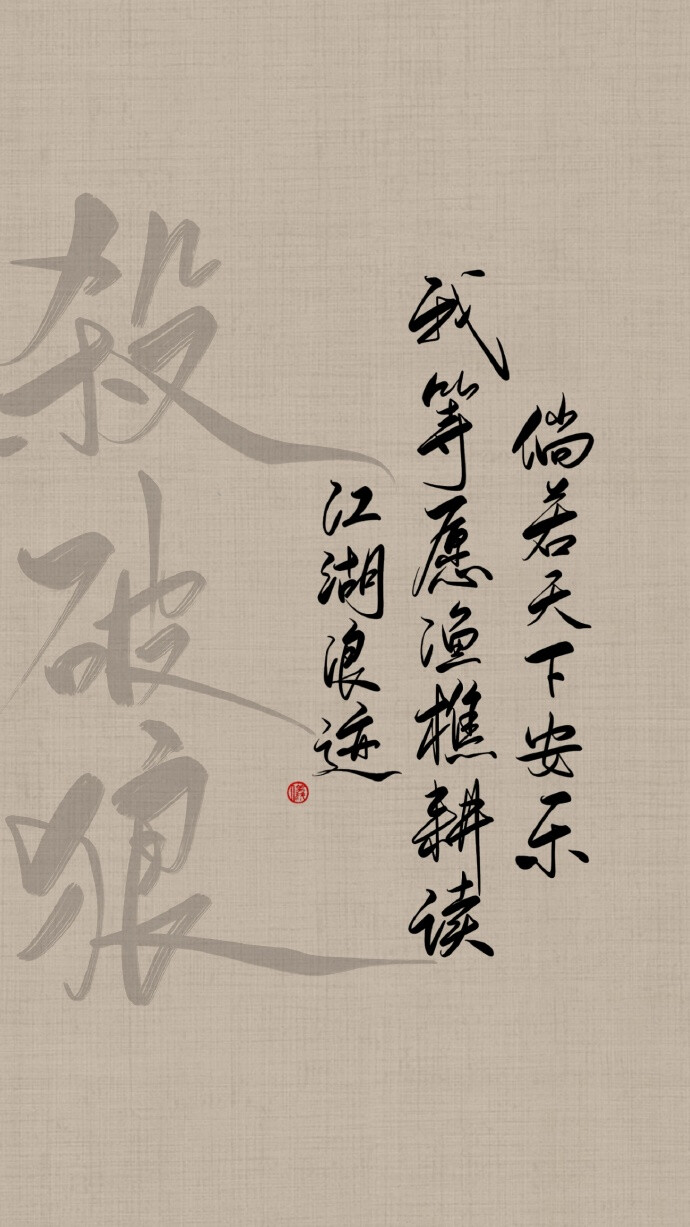 倘若天下安乐
我等愿渔樵耕读
江湖浪迹
殺破狼